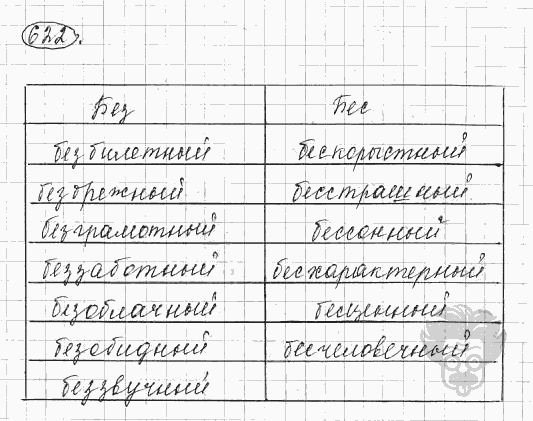 622.
Без Бес
безбилетный бескорыстный
безбрежный бесстрашный
безграмотный бессонный
беззаботный бесхарактерный
безоблачный бесценный
безобидный бесчеловечный
беззвучный